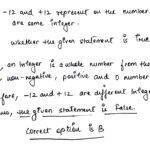 -12 and +12 represent on the number
are same integer.
whether the given statement is True
an integer is a whole number from the
non-negative, positive and 0 number
fore, -12 and +12 are different integer
the given statement is False.
Correct option is B